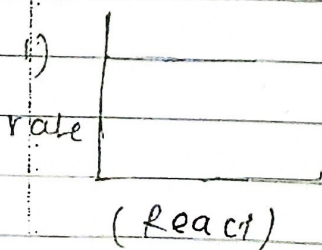 1)
rate
(React)